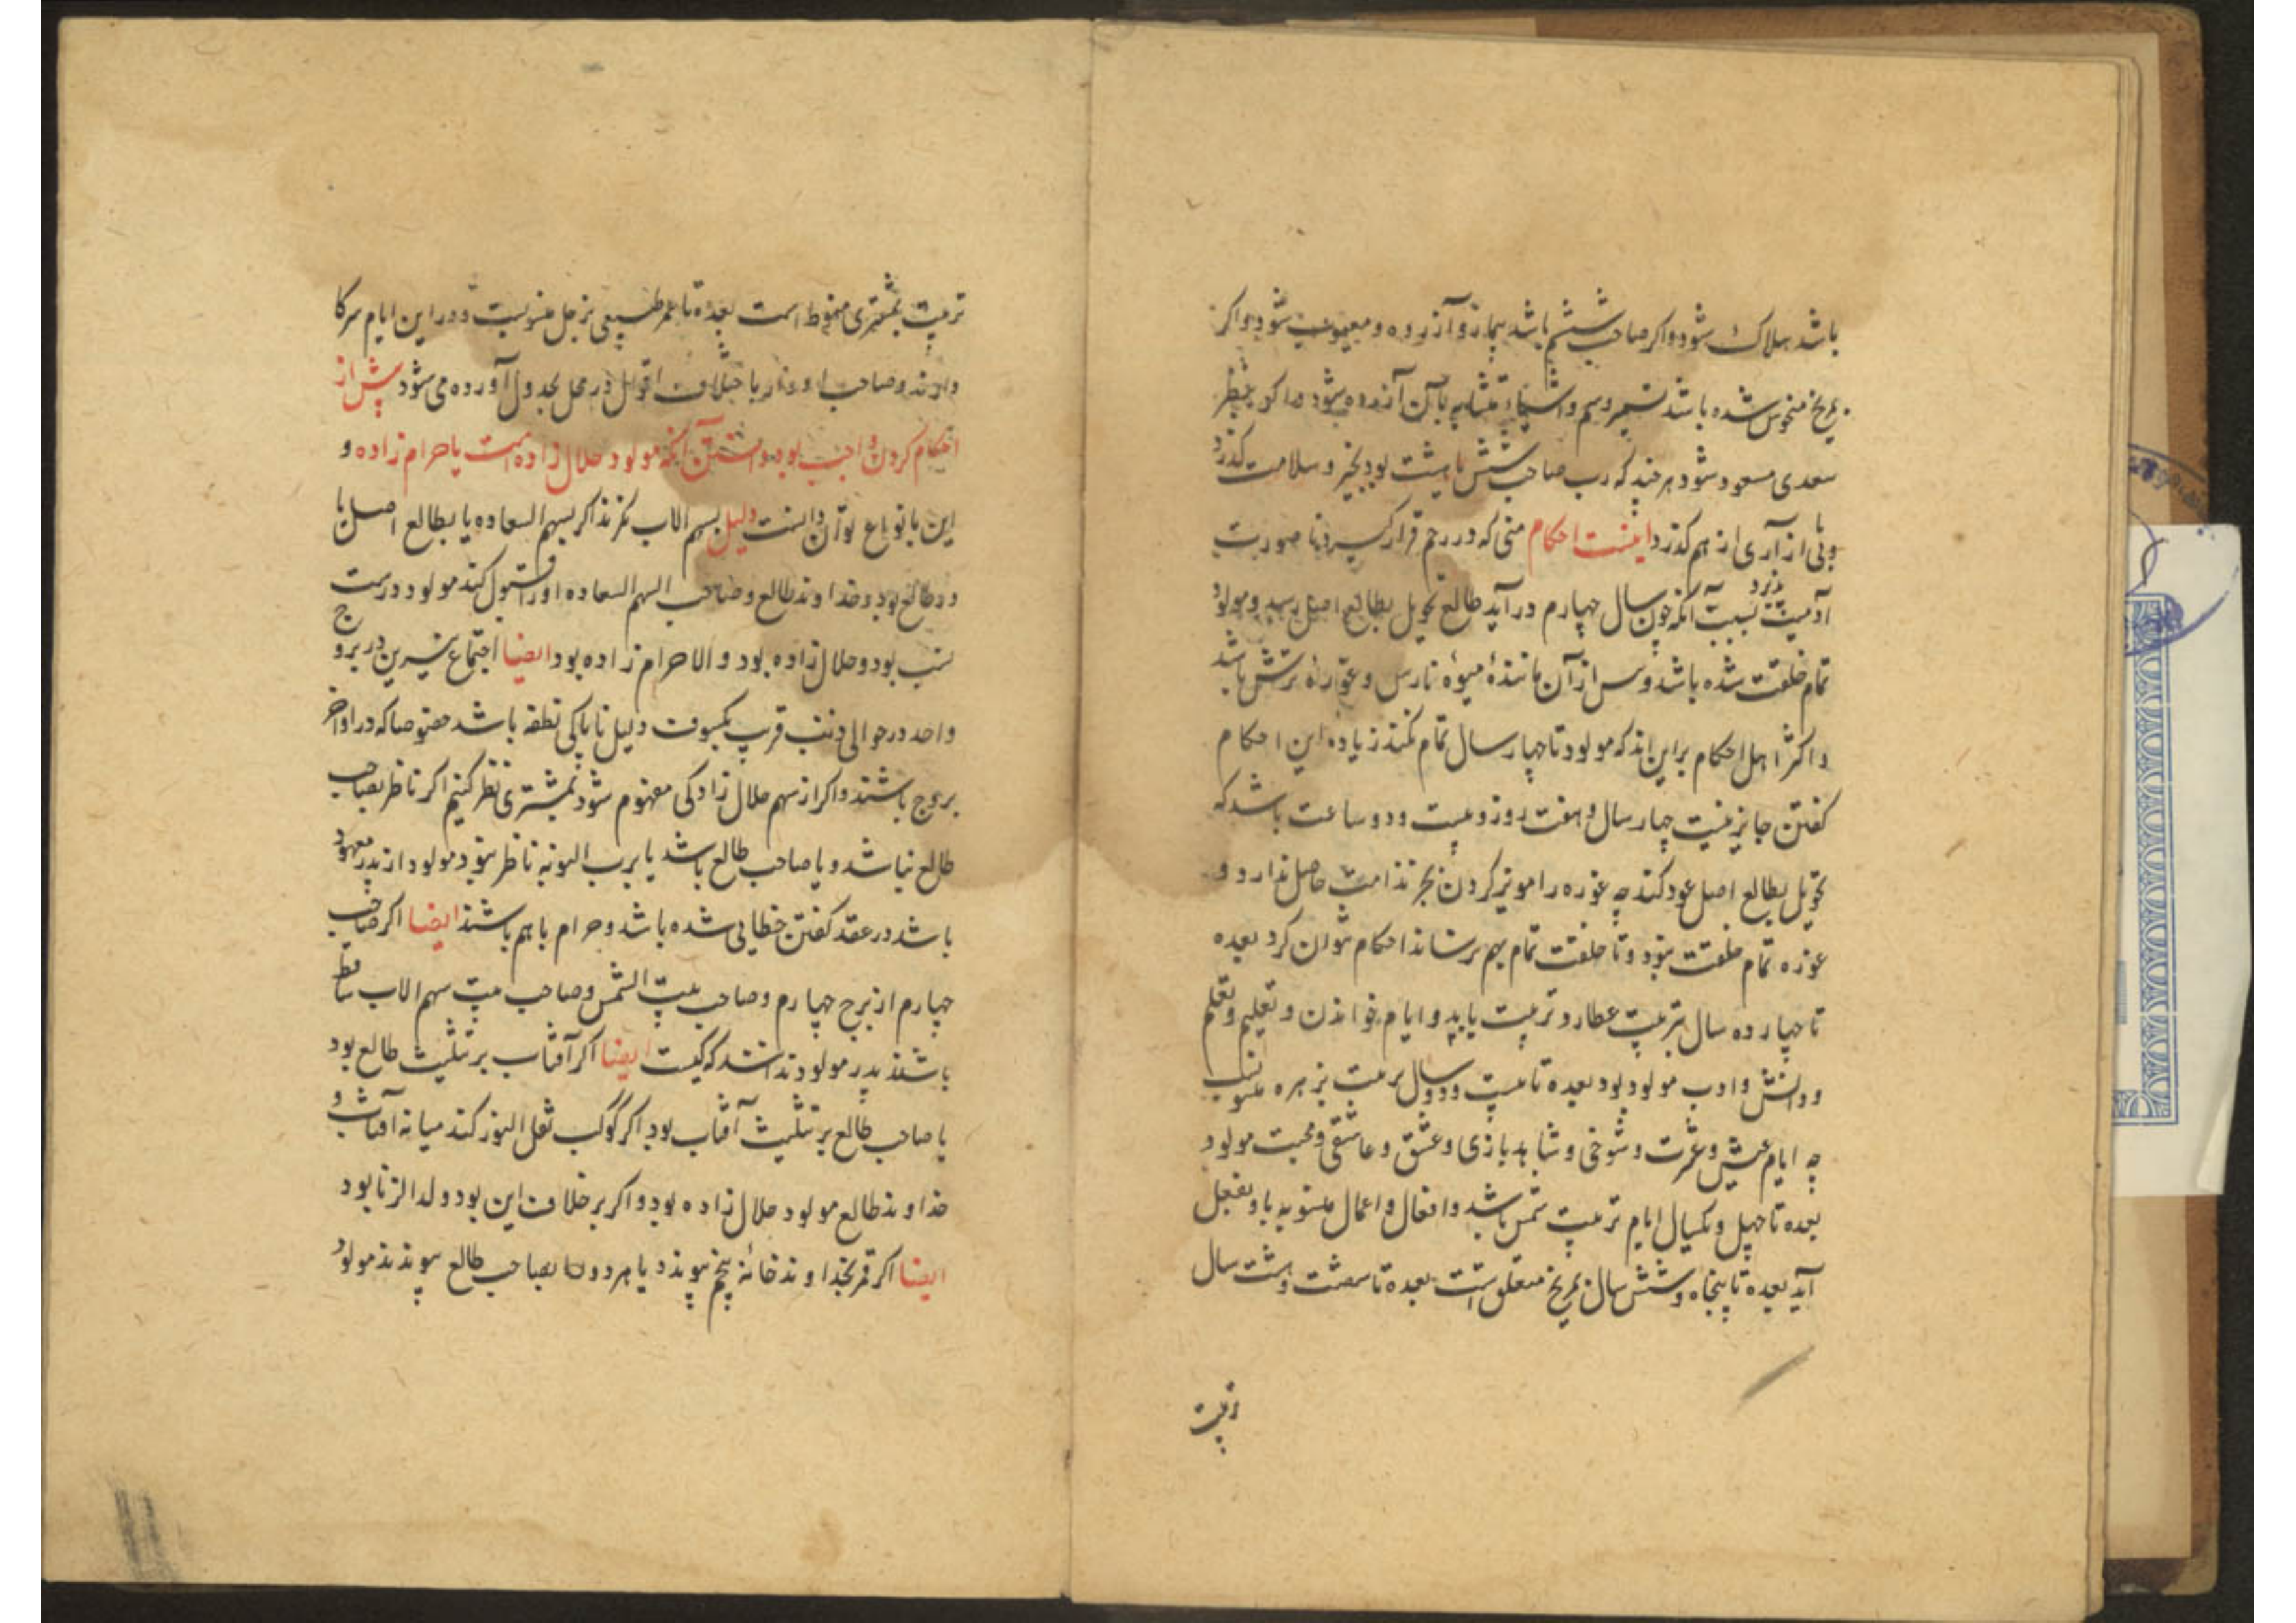 باشد هلاک شود و اگر صاحب ششم باشد بیمار و آزرده و معیوب شود و اگر
بمریخ منحوس شده باشد بتیر و سم و اشیاء متشابه بآن آزرده شود اما کر بنظر
سعدی مسعود شود هر چند که رب صاحب شش یا هشت بود بخیر و سلامت گذرد
و بی از آزاری از هم گذرد اینست احکام منی که در رحم قرار گیرد تا صورت
آدمیت پذیرد بسبب آنکه چون سال چهارم در آید طالع تحویل بطالع اصل رسد و مولود
تمام خلقت شده باشد و پس از آن مانندهٔ میوهٔ نارس و غورهٔ ترش باشد
و اکثر اهل احکام براین اند که مولود تا چهار سال تمام نکند زیاده این احکام
گفتن جایز نیست چهار سال و هفت روز و بیست و دو ساعت باشد که
تحویل بطالع اصل عود کند چه غوره را مویز کردن بجز ندامت حاصل ندارد و
غوره تمام خلقت نبود و تا خلقت تمام بهم نرساند احکام نتوان کرد بعده
تا چهارده سال بتربیت عطارد تربیت یابد و ایام خواندن و تعلیم و تعلم
و دانش و ادب مولود بود بعده تا بیست و دو سال تربیت بزهره منسوب
چه ایام عیش و عشرت و شوخی و شاهد بازی و عشق و عاشقی و محبت مولود
بعده تا چهل و یکسال ایام تربیت شمس باشد و افعال و اعمال منسوبه باو بفعل
آید بعده تا پنجاه و شش سال بمریخ متعلق است بعده تا شصت و هشت سال
تربیت
تربیت بمشتری منوط است بعده تا عمر طبیعی بزحل منسوبست و در این ایام سرکا
دارند و صاحب ادوار باختلاف اقوال در محل بجدول آورده می شود پیش از
احکام کردن واجب بود دانستن آنکه مولود حلال زاده است یا حرام زاده و
این بانواع توان دانست دلیل بسهم الاب نگرند اگر بسهم السعاده یا بطالع اصل یا
در طالع بود و خداوند طالع و صاحب السهم السعاده او را قبول کند مولود درست
نسب بود و حلال زاده بود و الا حرام زاده بود ایضا اجتماع نیرین در برج و
واحد در حوالی ذنب قرب یکسوف دلیل ناپاکی نطفه باشد خصوصا که در اواخر
بروج باشند و اگر از سهم حلال زادگی مفهوم شود بمشتری نظر کنیم اگر ناظر بصاحب
طالع نباشد و یا صاحب طالع باشد یا برب النوبه ناظر نبود مولود از پدر معهود
باشد در عقد گفتن خطایی شده باشد و حرام باهم باشند ایضا اگر صاحب
چهارم از برج چهارم و صاحب بیت الشمس و صاحب بیت سهم الاب ساقط
باشند پدر مولود ندانند که کیست ایضا اگر آفتاب بر تثلیث طالع بود
یا صاحب طالع بر تثلیث آفتاب بود اگر کوکب نقل النور کند میانه آفتاب و
خداوند طالع مولود حلال زاده بود و اگر بر خلاف این بود ولد الزنا بود
ایضا اگر قمر بخداوند خانه پنجم پیوندد یا هر دو بصاحب طالع پیوندند مولود